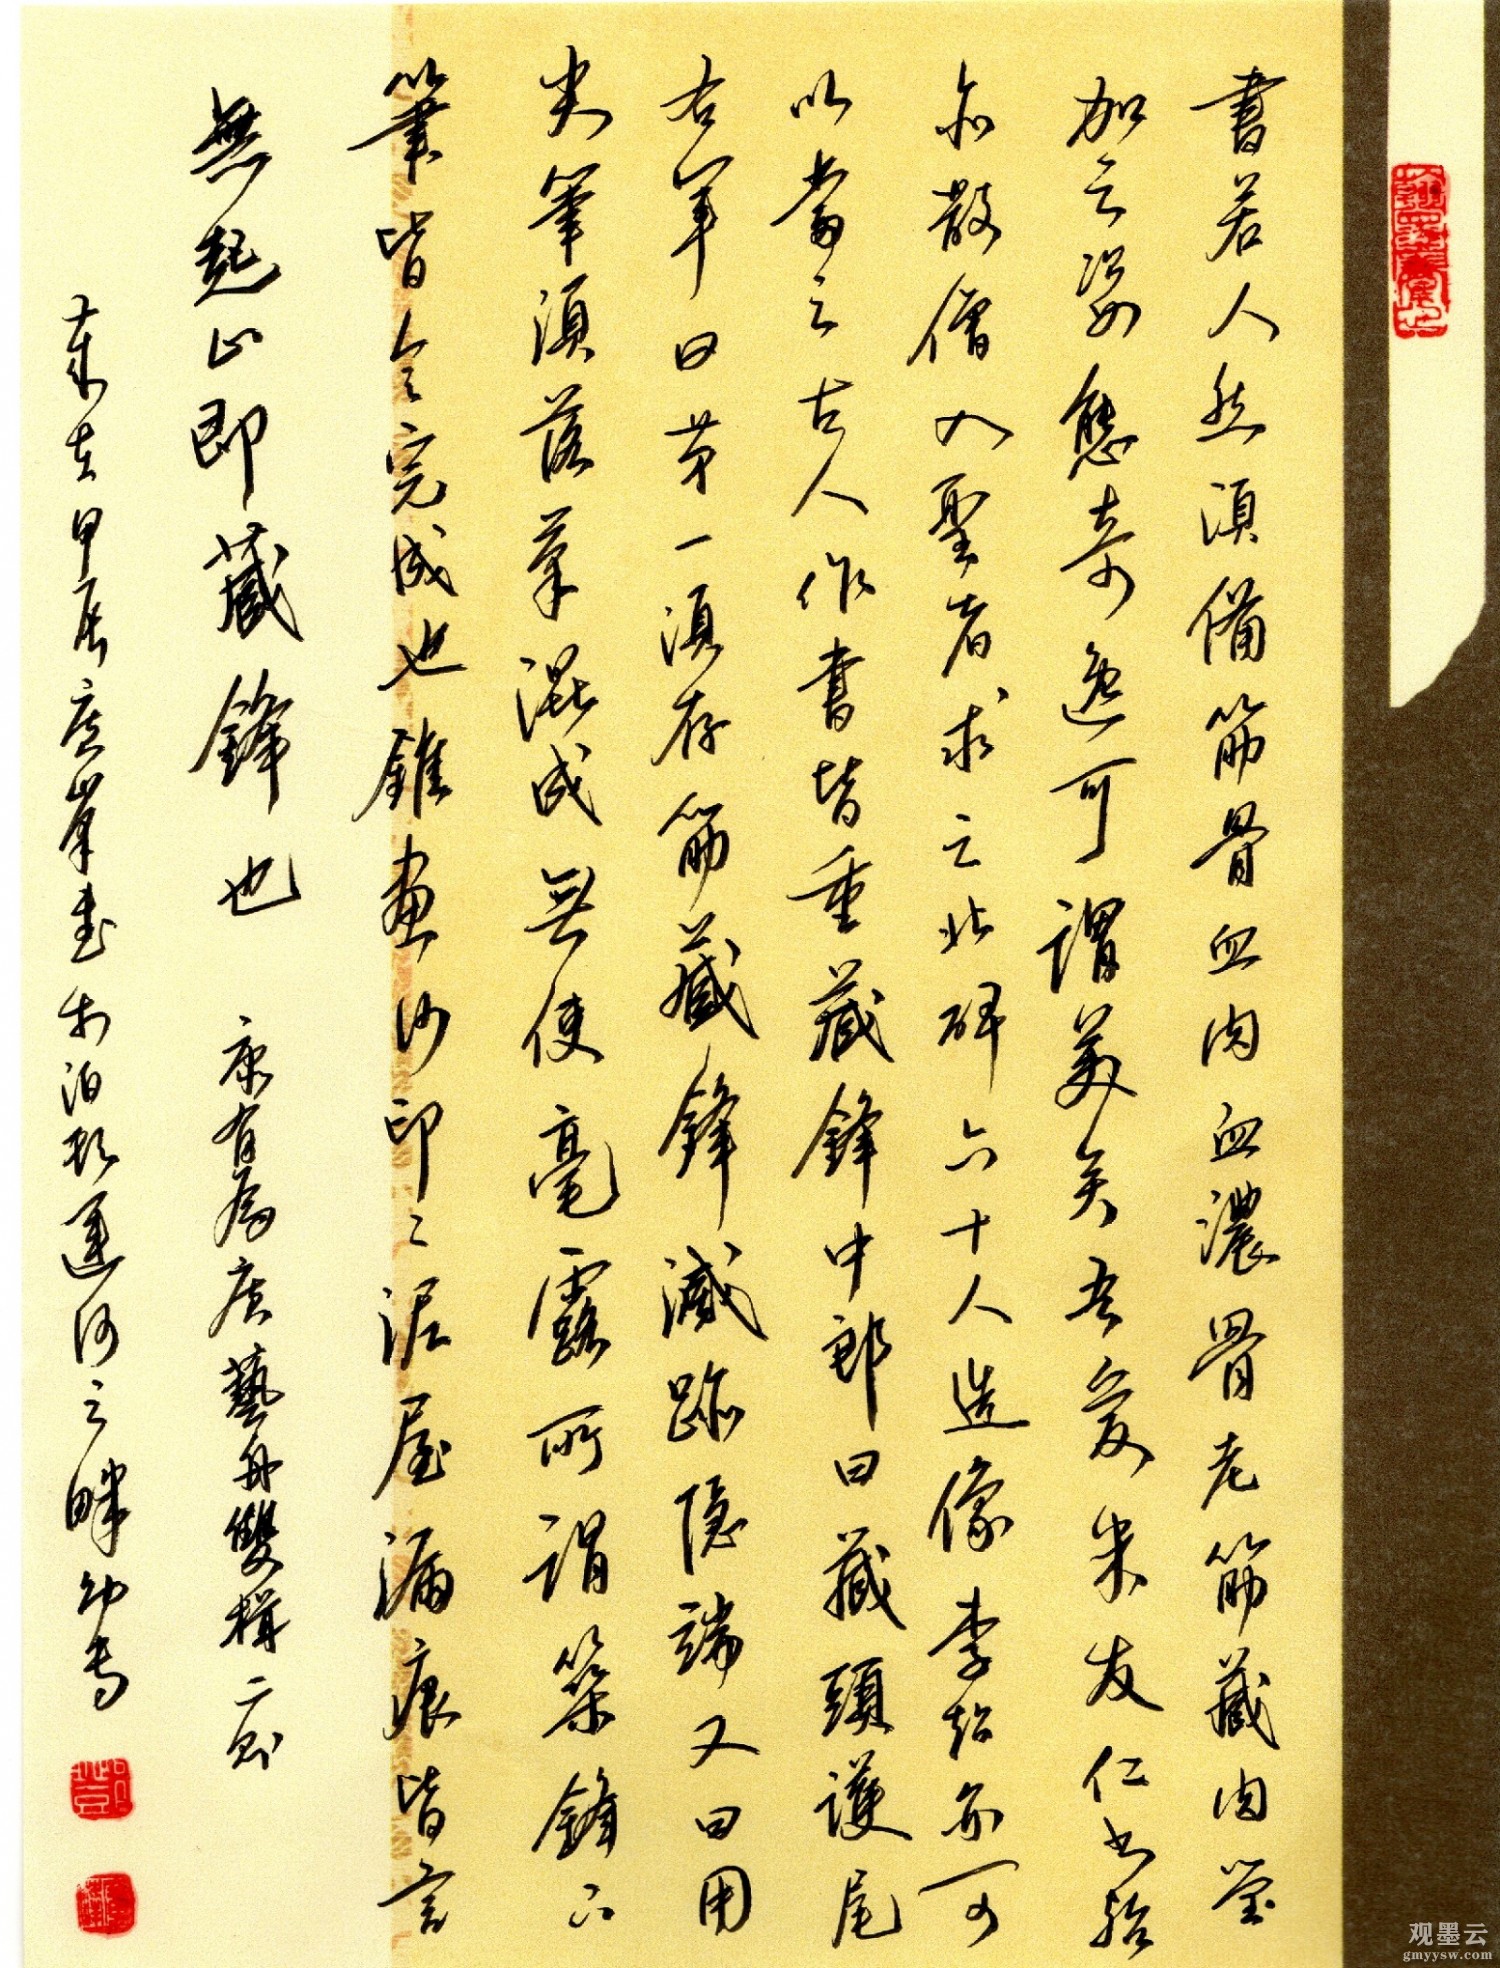 書若人然須備筋骨血肉血濃骨老筋藏肉瑩
加之姿態奇逸可謂美矣吾愛米友仁書殆
亦散僧入聖者求之北碑六十人造像李超亦可
以當之古人作書皆重藏鋒中郎曰藏頭護尾
右軍曰第一須存筋藏鋒滅跡隱端又曰用
尖筆須落筆混成無使毫露所謂築鋒下
筆皆令完成也錐畫沙印印泥屋漏痕皆言
無起止即藏鋒也 康有為廣藝舟雙楫二則
歲在甲辰 書於泊頭運河之畔
观墨云
gmyysw.com